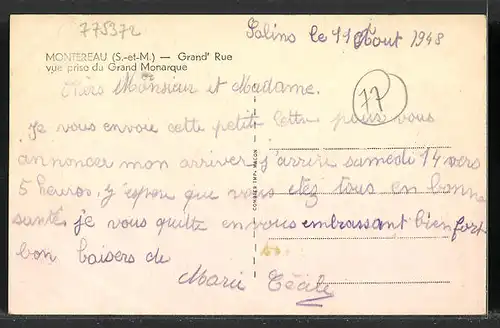 775372
Salins le 11 Aout 1948
MONTEREAU (S.-et-M.) — Grand' Rue
vue prise du Grand Monarque
Chers Monsieur et Madame.
77
Je vous envoie cette petite lettre pour vous
annoncer mon arriver j'arrive samedi 14 vers
5 heures, j'espere que vous etez tous en bonne
santé, je vous quitte en vous embrassant bien fort
bon baisers de
Marie Cécile
COMBIER IMP. MACON